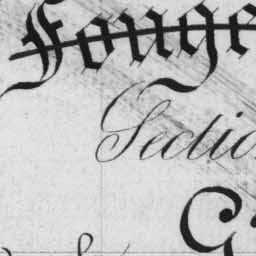 Fouge
Sectio
G